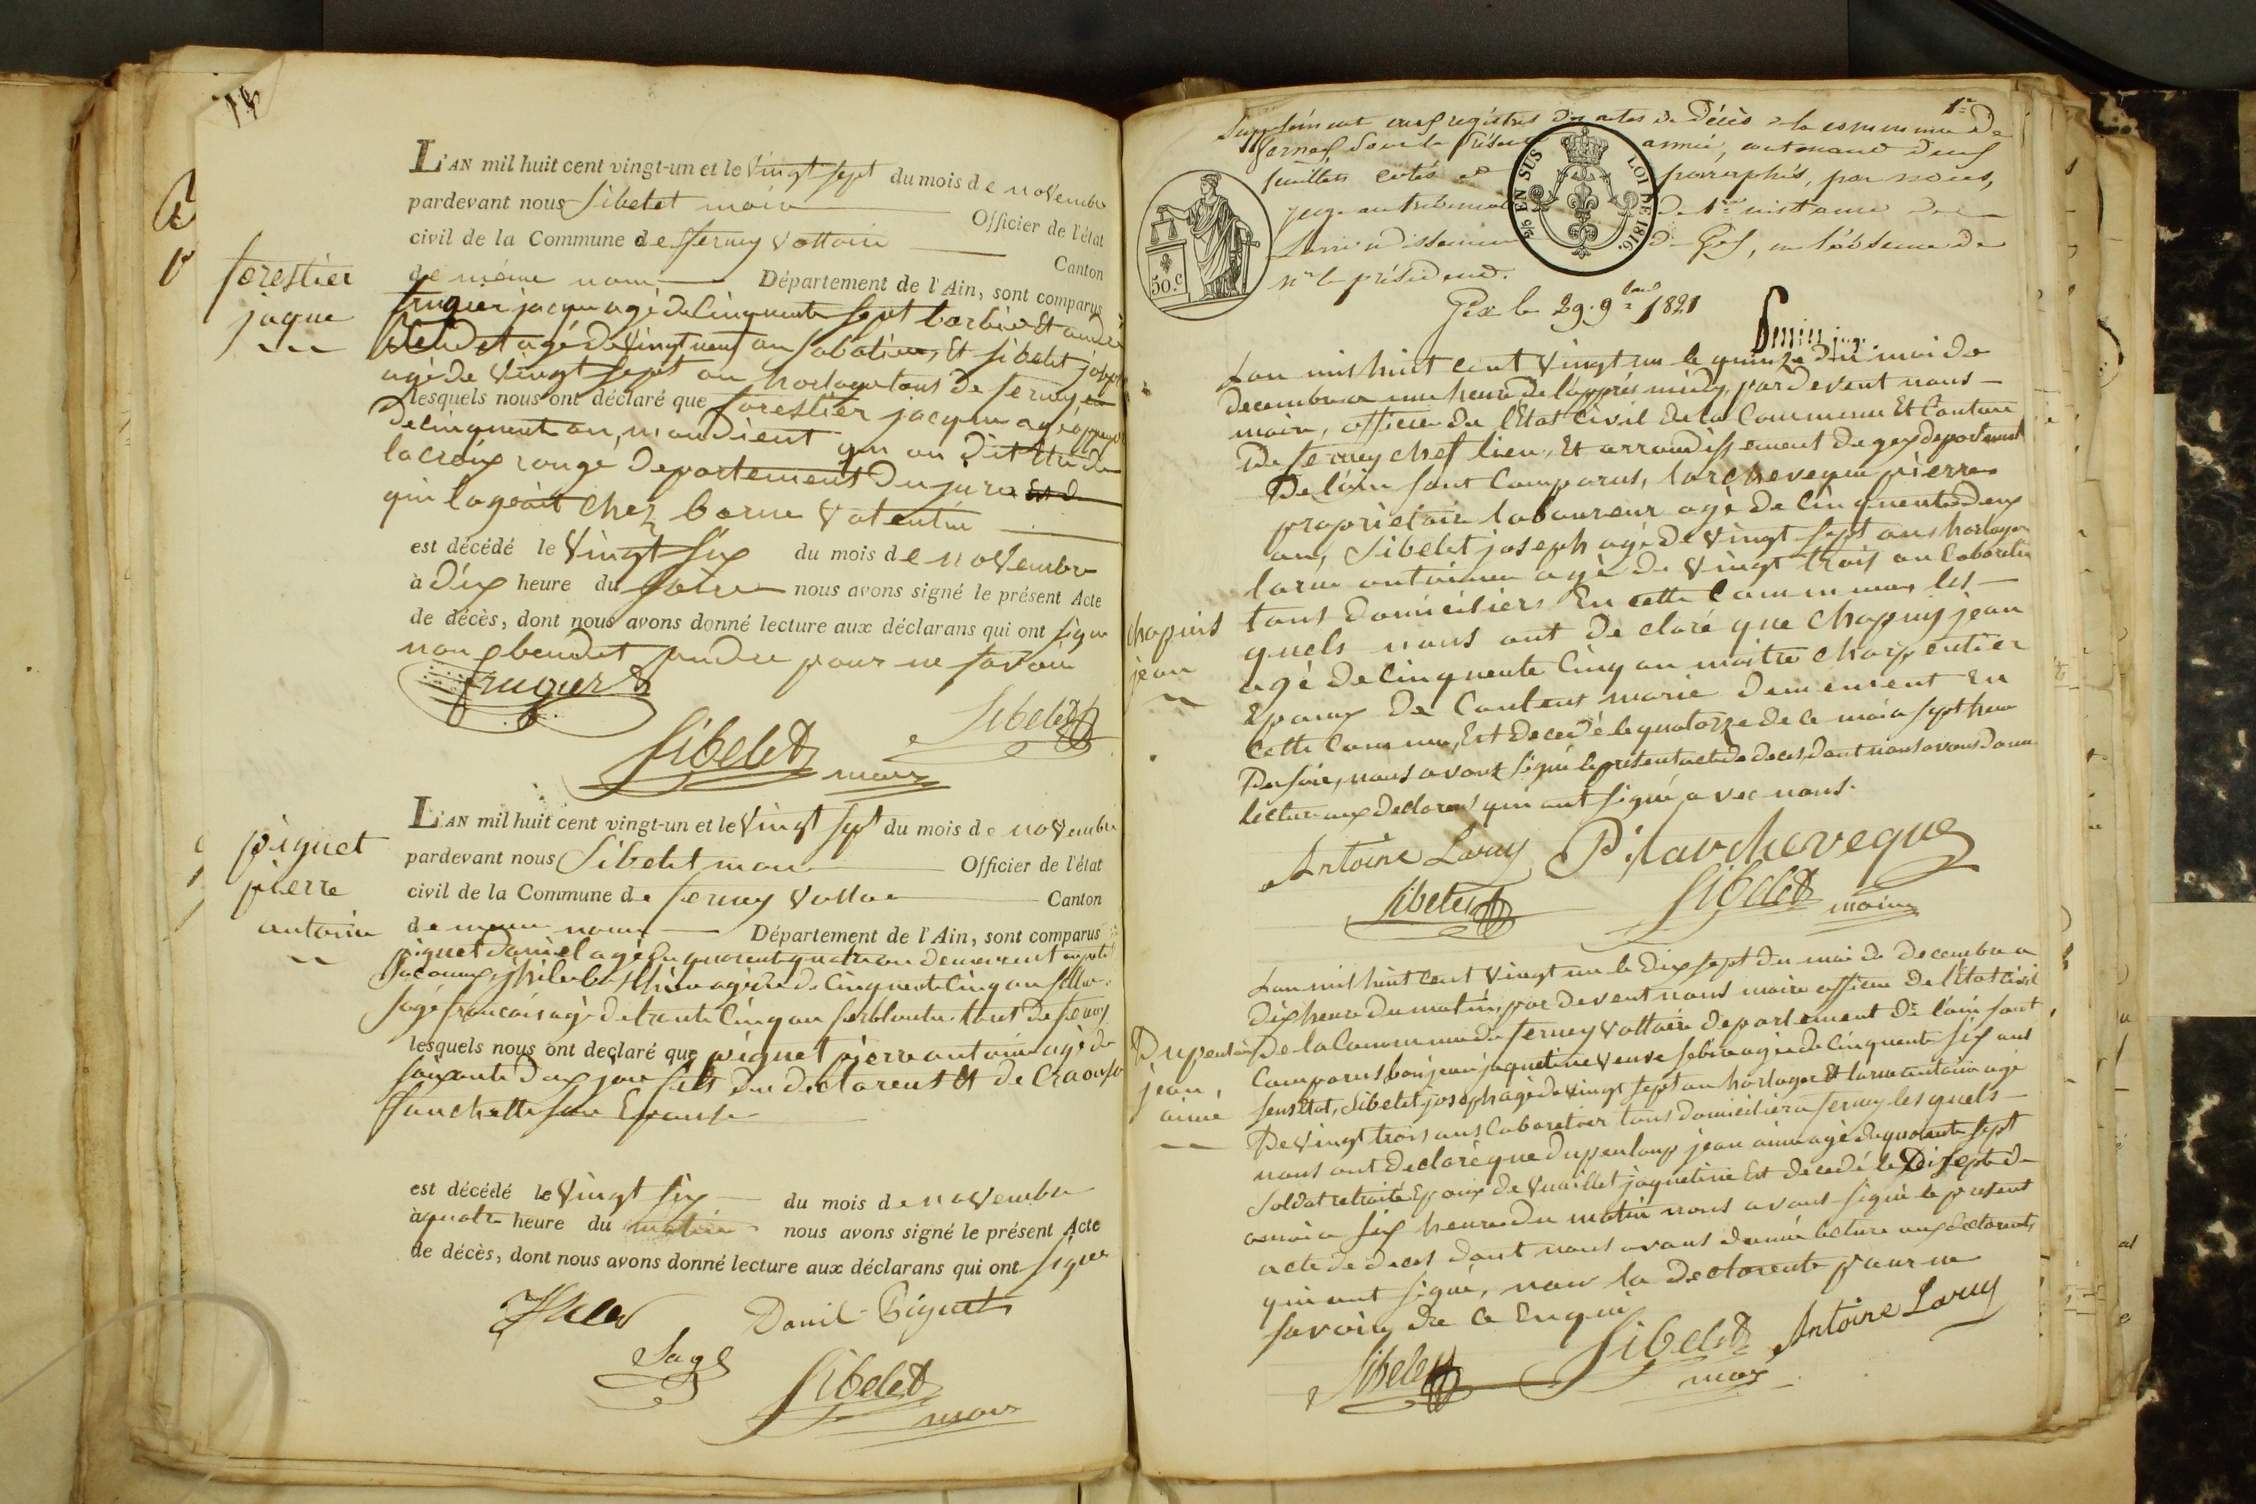 forestier
jaque
L'AN mil huit cent vingt-un et le vingt sept du mois de novembre
pardevant nous Sibelet maire Officier de l'état
civil de la Commune de ferney voltaire Canton
de même nom Département de l'Ain, sont comparus
agé de cinquante sept barbier Et
agé de vingt neuf an Et Sibelet joseph
agé de vingt sept an horloger tous de ferney
lesquels nous ont déclaré que forestier jacque agé
de cinquante an, mandient qu on dit Etre de
la croix rouge Departement du jura
qui logeait chez borne valentin
est décédé le vingt six du mois de novembre
à dix heure du soire nous avons signé le présent Acte
de décès, dont nous avons donné lecture aux déclarans qui ont signé
non pour ne savoir
Sibelet
Sibelet maire
piguet
pierre
antoine
L'AN mil huit cent vingt-un et le vingt sept du mois de novembre
pardevant nous Sibelet maire Officier de l'état
civil de la Commune de ferney Canton
de meme nom Département de l'Ain, sont comparus
piguet Daniel agé de quarente quatre an demeurent
agé de cinquente cinq an
sage françois agé de trente cinq an ferblantie tous de ferney
lesquels nous ont declaré que piguet pierre antoine agé de
jour fils du declarent Et de
fanchette son Epouse
est décédé le vingt six du mois de novembre
à quatre heure du matin nous avons signé le présent Acte
de décès, dont nous avons donné lecture aux déclarans qui ont signé
Daniel Piguet
Sage
Sibelet
maire
1er
Supplément aux registres des actes de Décès de la commune de
fernex pour la présente année, contenant deux
feuillets cotés et paraphés, par nous,
juge au tribunal de 1ere instance de
L'arrondissement de Gex, en l'absence de
Mr le président.
Gex le 29 9bre 1821
50.c
25c EN SUS
LOI DE 1816.
Lan mil huit cent vingt un le quinze du moi de
decembre a une heure de l'apprès midy, par devent nous
maire, officier de l'Etat civil de la Commune Et Canton
De ferney chef lieu, Et arrondissement de gex departement
De l'ain sont Comparus, larcheveque pierre
proprietaire laboureur agé de cinquente deux
ans, Sibelet joseph agé de vingt sept ans horloger
larue antoinne agé de vingt trois an Cabaretie
tous domiciliers En cette Commune, les
quels nous ont declaré que Chapuy jean
agé de cinquente cinq an maître charpentier
Epoux de marie demeurent En
cette Commune, Est decedé le quatorze de ce moi a sept heure
Du soir, nous avons signé le présent acte de deces, dont nous avons donné
lecture aux declarens qui ont signé avec nous.
chapuis
jean
Antoine Larue P. Larcheveque
Sibelet Sibelet maire
Lan mil huit cent vingt un le dix sept du moi de decembre a
dix heure du matin, par devent nous maire officier de l'Etat civil
De la Commune de ferney voltaire departement de l'ain sont
Comparus jaquetine veuve agée de cinquente six ans
sens Etat, Sibelet joseph agé de vingt sept an horloger Et larue antoine agé
De vingt trois ans Cabaretier tous domicilier a ferney les quels
nous ont declaré que dupenloup jean aimé agé de quarente sept
soldat retraité Epoux de vuaillet jaquetine Est decedé le dix sept de
a six heure du matin nous avons signé le present
acte de deces dont nous avons donné lecture aux declarents
qui ont signé, non la declarente pour ne
savoir de ce Enquis
jean
aimé
Sibelet Sibelet Antoine Larue
maire